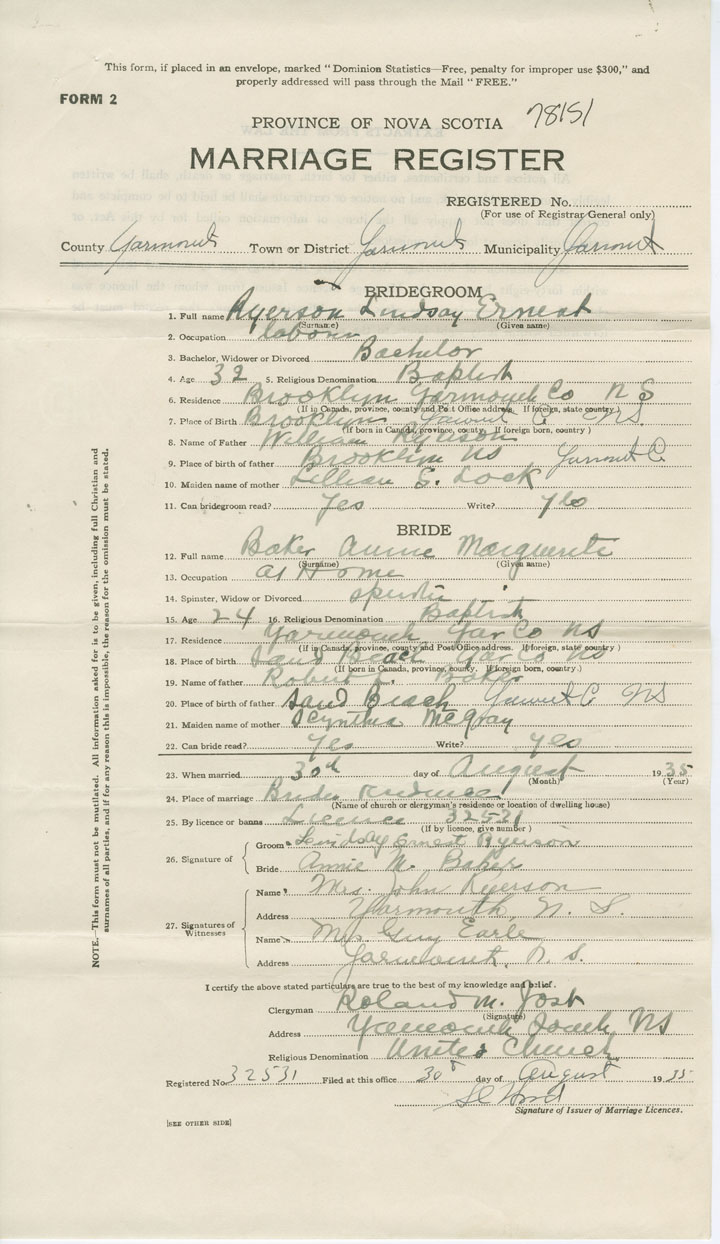 This form, if placed in an envelope, marked "Dominion Statistics—Free, penalty for improper use $300," and
properly addressed will pass through the Mail "FREE."
FORM 2
PROVINCE OF NOVA SCOTIA 78151
MARRIAGE REGISTER
REGISTERED No.
(For use of Registrar General only)
County Yarmouth Town or District Yarmouth Municipality Yarmouth
BRIDEGROOM
1. Full name Ryerson Lindsay Ernest
(Surname) (Given name)
2. Occupation labour
3. Bachelor, Widower or Divorced Bachelor
4. Age 32 5. Religious Denomination Baptist
6. Residence Brooklyn Yarmouth Co N S
(If in Canada, province, county and Post Office address. If foreign, state country)
7. Place of Birth Brooklyn Yarmouth C NS.
(If born in Canada, province, county. If foreign born, country)
8. Name of Father William Ryerson
9. Place of birth of father Brooklyn NS Yarmouth C.
10. Maiden name of mother Lillian S. Lock
11. Can bridegroom read? Yes Write? Yes
BRIDE
12. Full name Baker Annie Marguerite
(Surname) (Given name)
13. Occupation At Home
14. Spinster, Widow or Divorced
15. Age 24 16. Religious Denomination Baptist
17. Residence Yarmouth Yar Co NS
(If in Canada, province, county and Post Office address. If foreign, state country)
18. Place of birth Sand Beach Yar Co NS
(If born in Canada, province, county. If foreign born, country.)
19. Name of father Robert Baker
20. Place of birth of father Sand Beach Yarmouth C NS
21. Maiden name of mother Scynthia McGray
22. Can bride read? Yes Write? Yes
23. When married 30th day of August 1935
(Month) (Year)
24. Place of marriage Brides Residence
(Name of church or clergyman's residence or location of dwelling house)
25. By licence or banns Licence 32531
(If by licence, give number)
26. Signature of
Groom Lindsay Ernest Ryerson
Bride Annie M. Baker
27. Signatures of Witnesses
Name Mrs. John Ryerson
Address Yarmouth, N. S.
Name Mrs Guy Earle
Address Yarmouth, N. S.
I certify the above stated particulars are true to the best of my knowledge and belief.
Clergyman Roland M. Jost
(Signature)
Address Yarmouth South NS
Religious Denomination United Church
Registered No. 32531 Filed at this office 30th day of August 1935
Signature of Issuer of Marriage Licences.
[SEE OTHER SIDE]
NOTE.—This form must not be mutilated. All information asked for is to be given, including full Christian and
surnames of all parties, and if for any reason this is impossible, the reason for the omission must be stated.